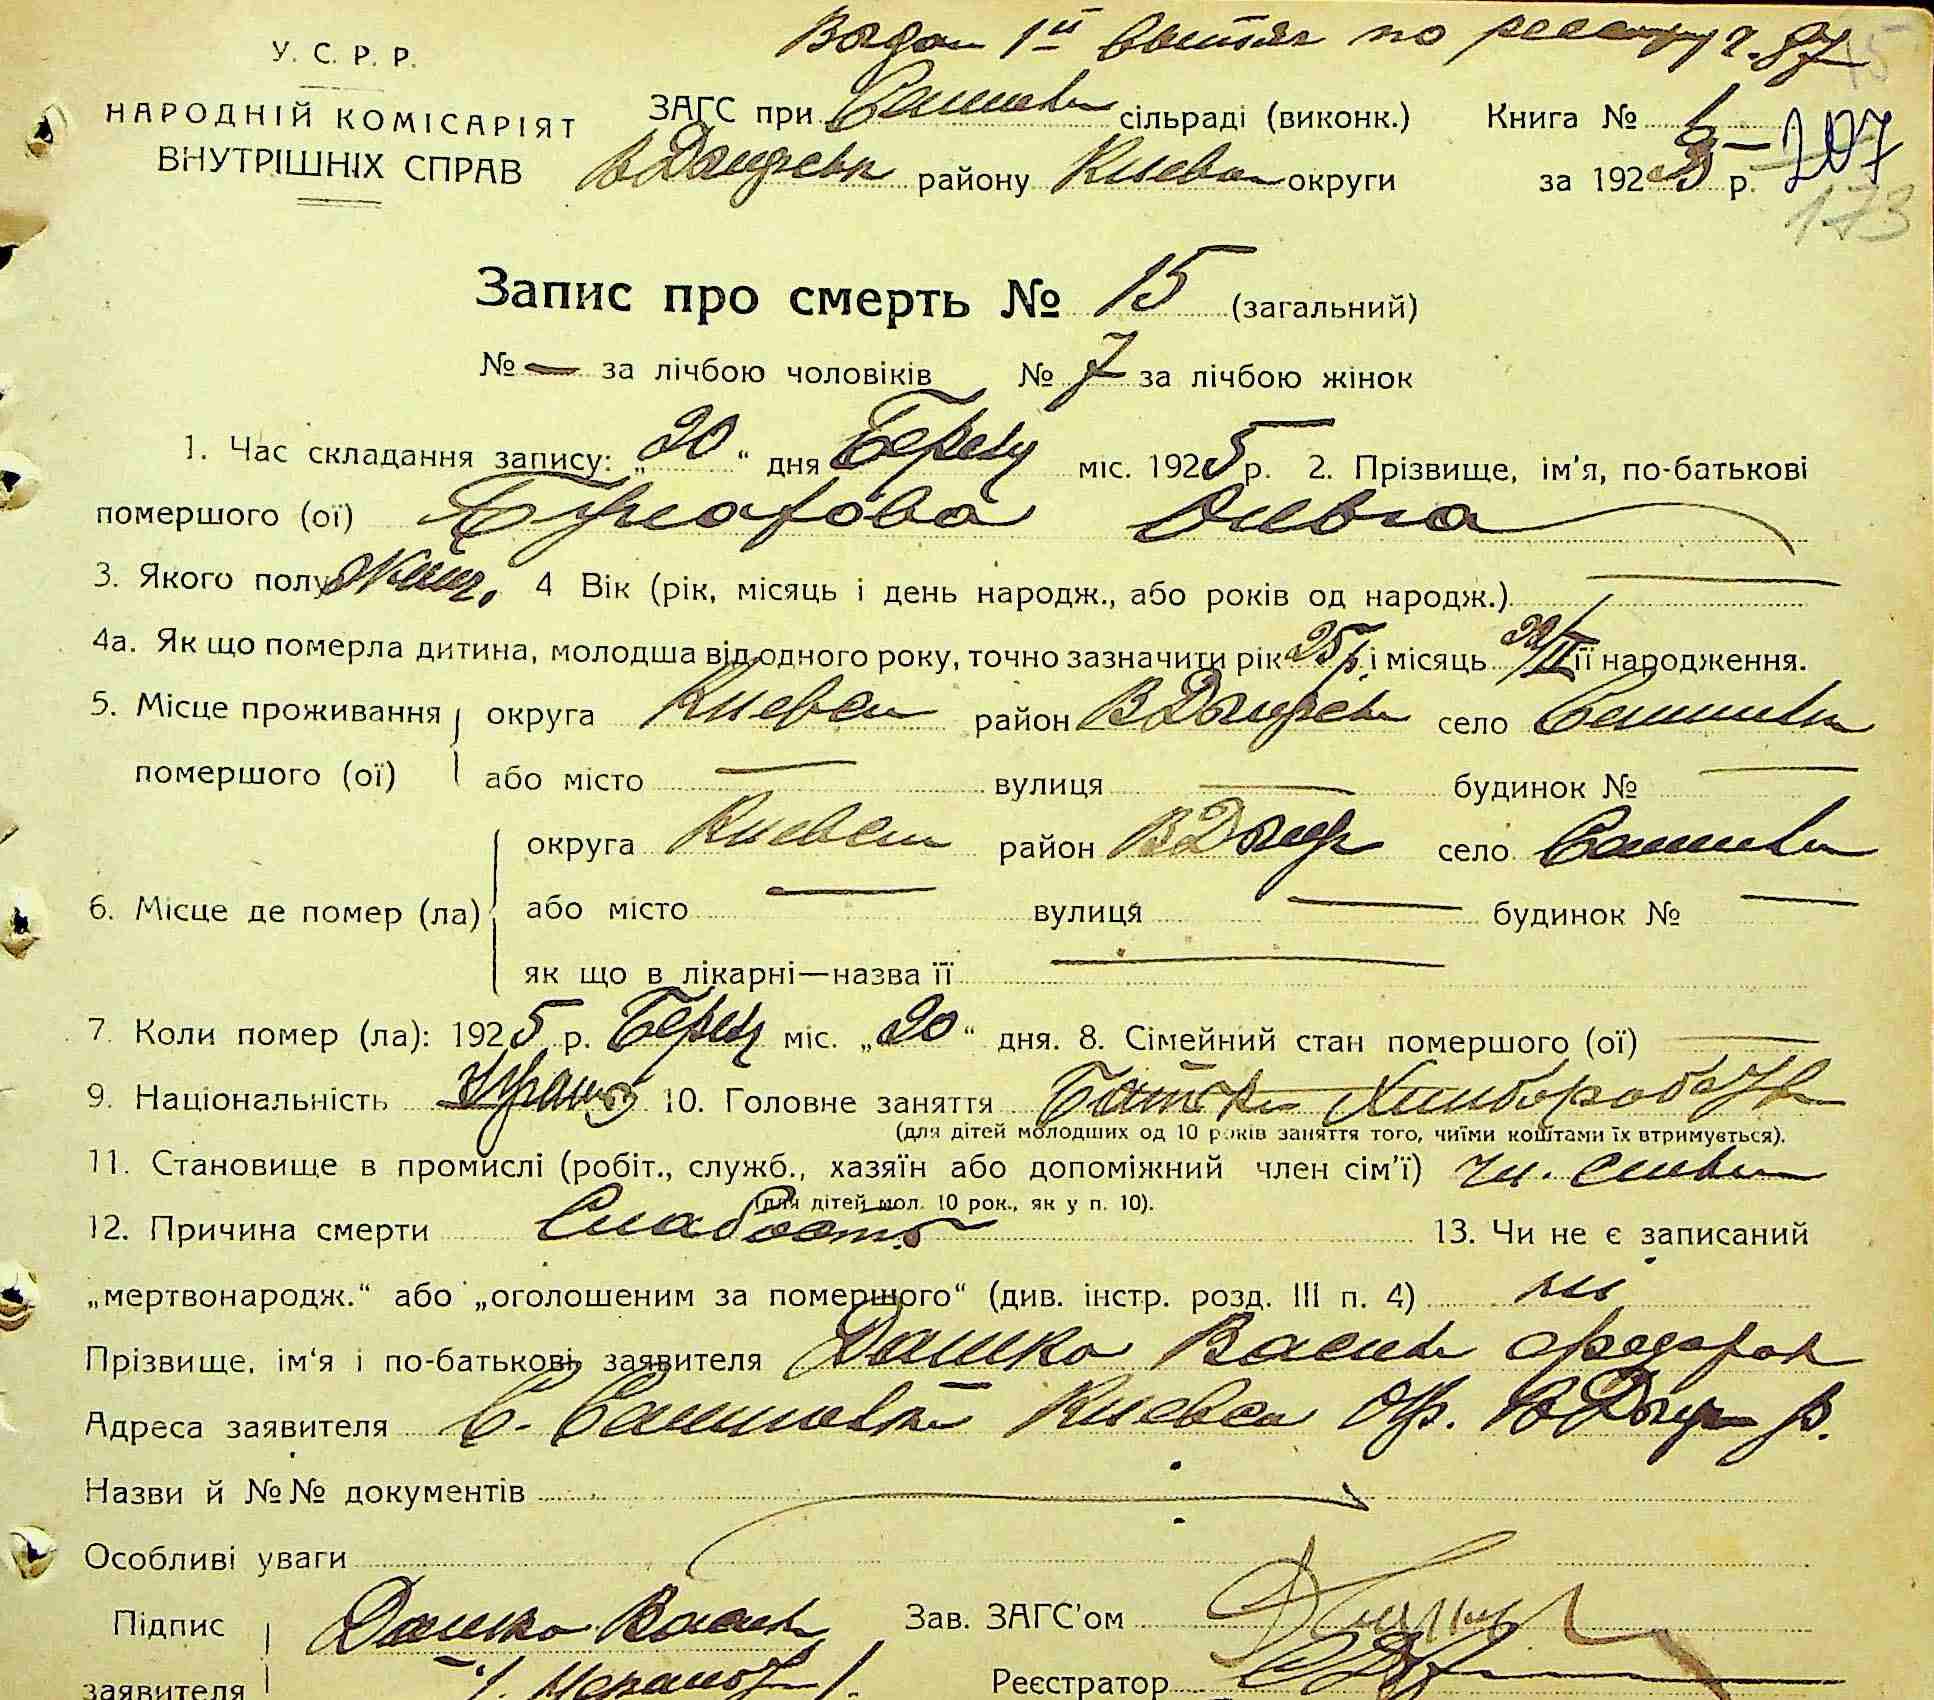 Видан 1й витяг по реестру ч. 87
У. С. Р. Р.
НАРОДНІЙ КОМІСАРІЯТ
ВНУТРІШНІХ СПРАВ
ЗАГС при сільраді (виконк.)
району Києвс округи
Книга №
за 1925 р.
207
173
Запис про смерть № 15 (загальний)
№ — за лічбою чоловіків № 7 за лічбою жінок
1. Час складання запису: „20“ дня Берез міс. 1925 р. 2. Прізвище, ім'я, по-батькові
помершого (ої) Ольга
3. Якого полу жіноч. 4 Вік (рік, місяць і день народж., або років од народж.) —
4а. Як що померла дитина, молодша від одного року, точно зазначити рік 25 р. і місяць її народження.
5. Місце проживання округа Києвс район В Димерс село
помершого (ої) або місто — вулиця — будинок № —
6. Місце де помер (ла) округа Києвс район В Димер село
або місто — вулиця — будинок № —
як що в лікарні—назва її —
7. Коли помер (ла): 1925 р. Берез міс. „20“ дня. 8. Сімейний стан помершого (ої) —
9. Національність Україн 10. Головне заняття Батьки Хлиборобств
(для дітей молодших од 10 років заняття того, чиїми коштами їх втримується).
11. Становище в промислі (робіт., служб., хазяїн або допоміжний член сім'ї) чл. сімьи
(для дітей мол. 10 рок., як у п. 10).
12. Причина смерти Слабость 13. Чи не є записаний
„мертвонародж.“ або „оголошеним за помершого“ (див. інстр. розд. III п. 4) ні
Прізвище, ім'я і по-батькові заявителя Дашко Василь Федоров
Адреса заявителя С. Києвс Окр. В Димер р.
Назви й №№ документів —
Особливі уваги
Підпис Дашко Василь Зав. ЗАГС'ом
заявителя Реєстратор